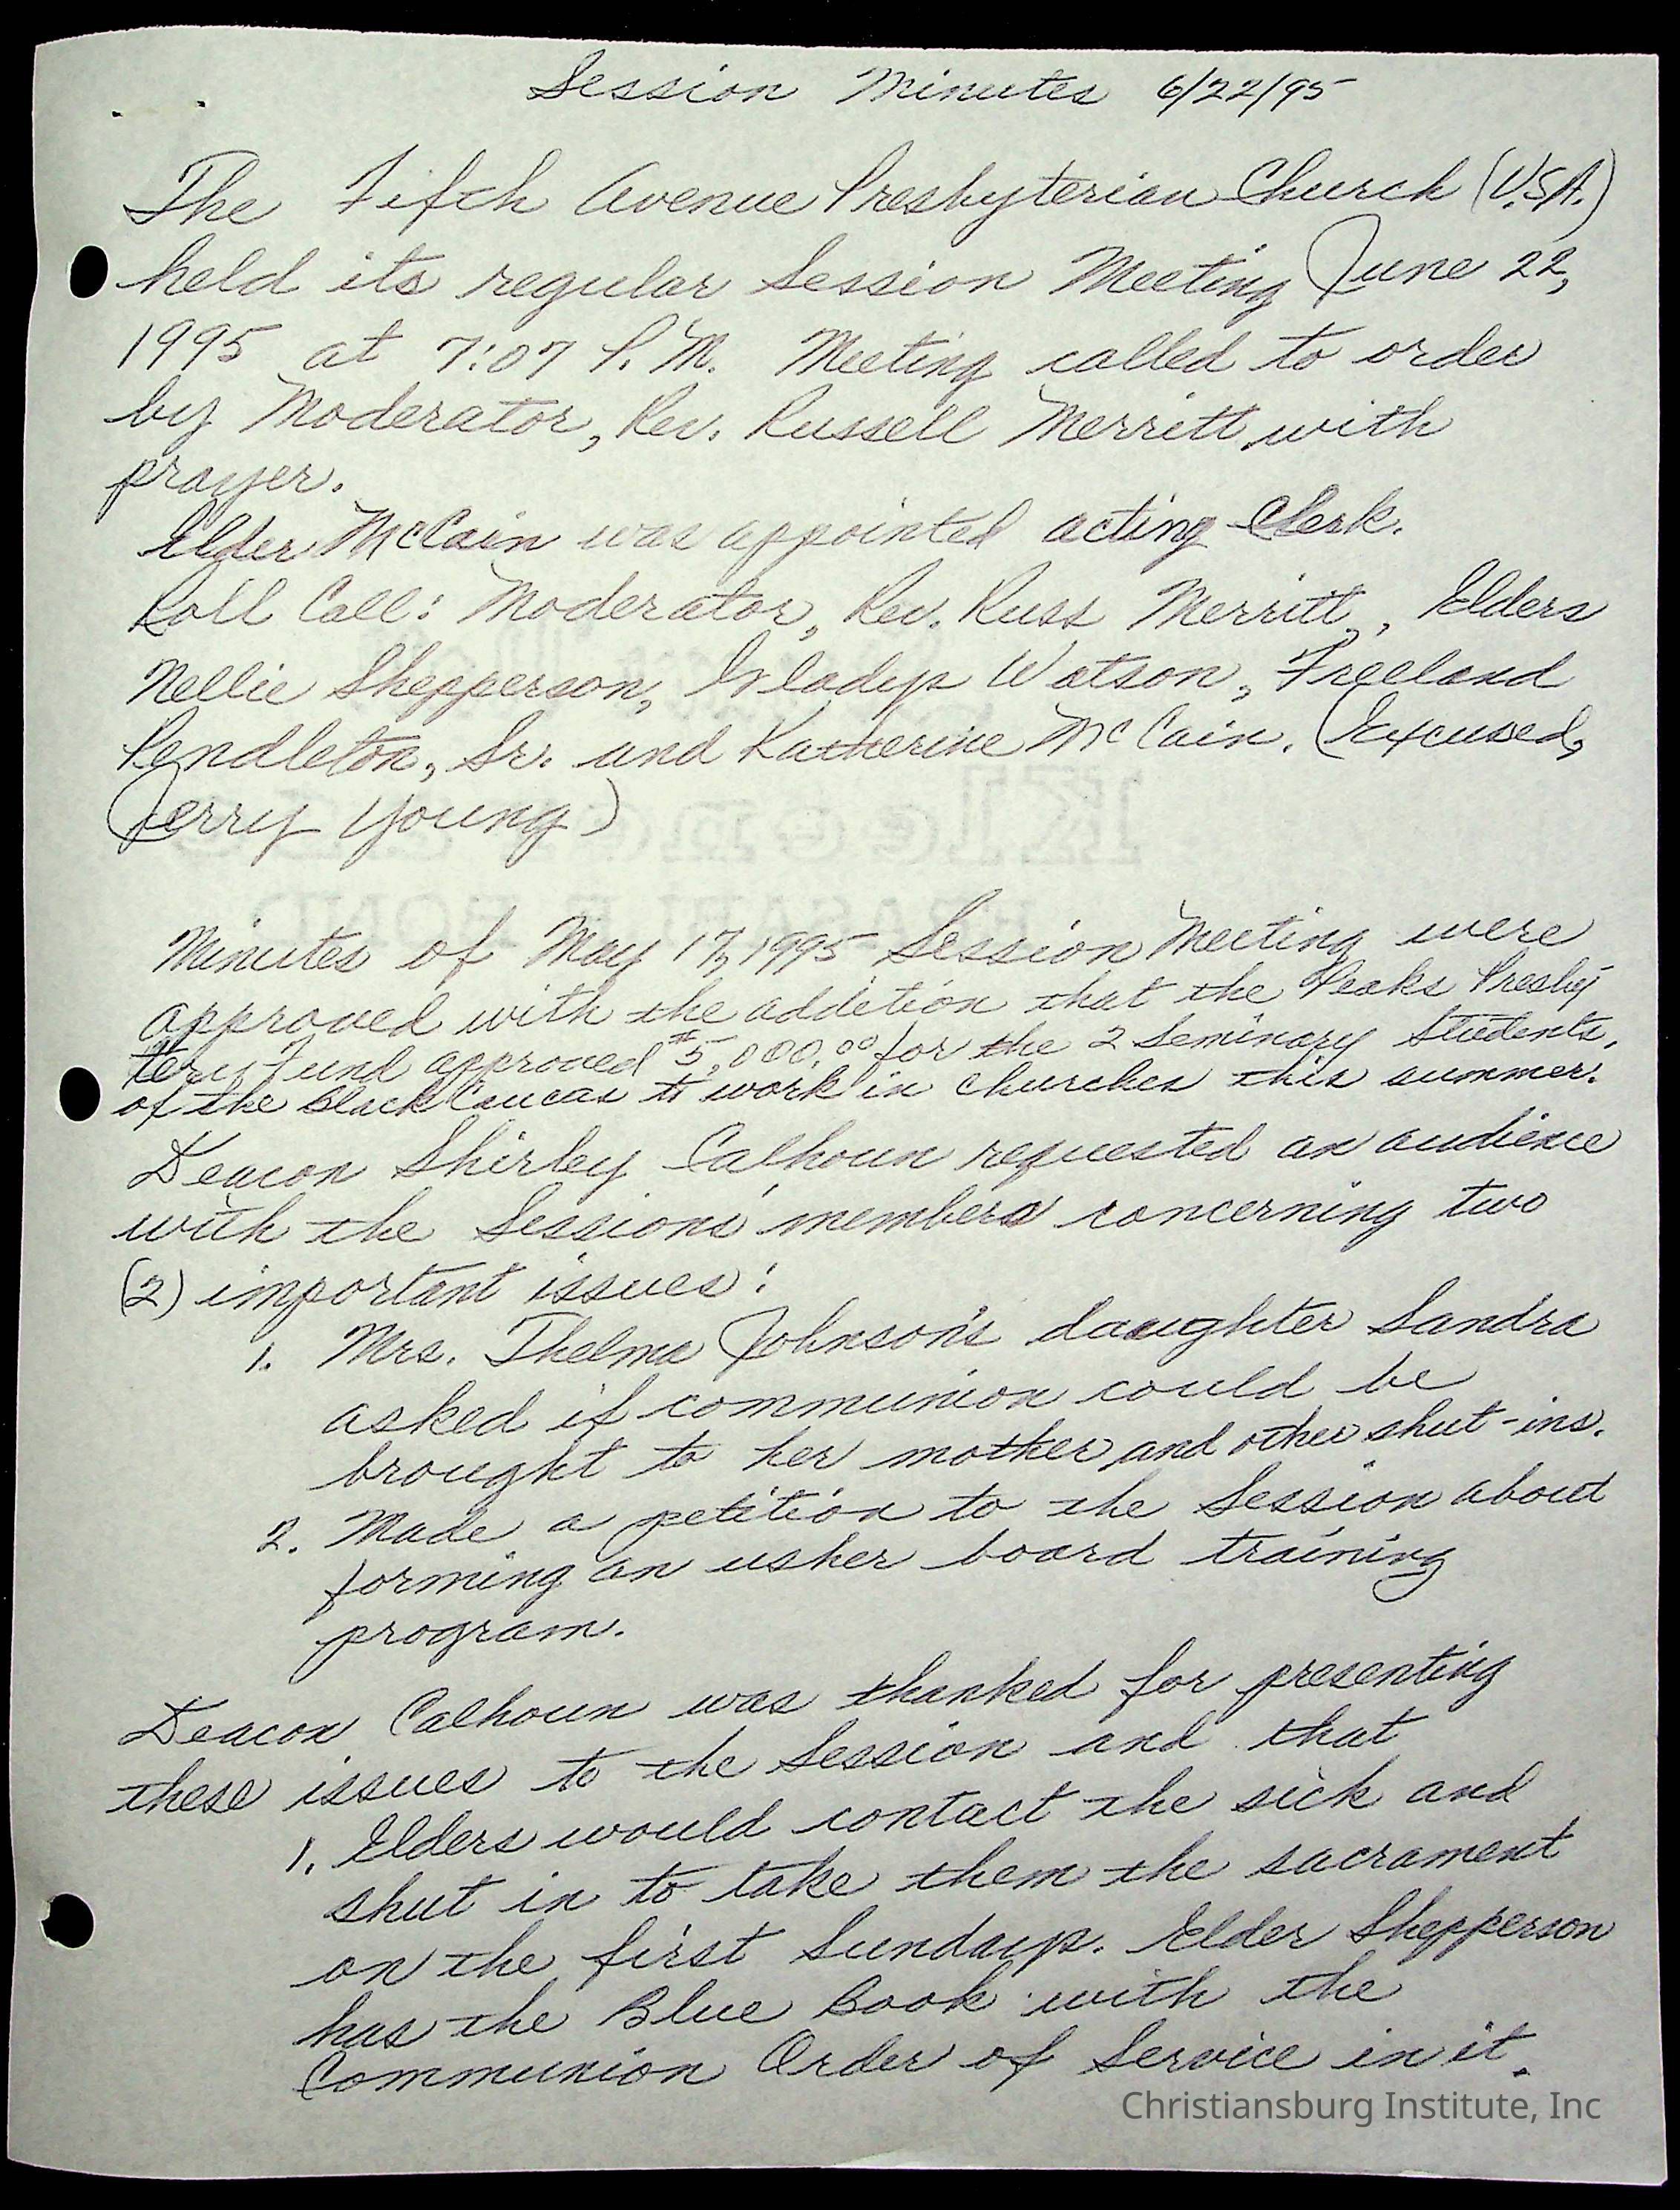 Session Minutes 6/22/95
The Fifth Avenue Presbyterian Church (U.S.A.)
held its regular Session Meeting June 22,
1995 at 7:07 P.M. Meeting called to order
by Moderator, Rev. Russell Merritt with
prayer.
Elder McCain was appointed acting Clerk.
Roll Call: Moderator, Rev. Russ Merritt, Elders
Nellie Shepperson, Gladys Watson, Freeland
Pendleton, Sr. and Katherine McCain. (Excused,
Jerry Young)
Minutes of May 17, 1995 Session Meeting were
approved with the addition that the Peaks Presby
tery Fund approved $5,000.00 for the 2 Seminary Students,
of the Black Caucas to work in churches this summer.
Deacon Shirley Calhoun requested an audience
with the Sessions' members concerning two
(2) important issues:
1. Mrs. Thelma Johnson's daughter Sandra
asked if communion could be
brought to her mother and other shut-ins.
2. Made a petition to the Session about
forming an usher board training
program.
Deacon Calhoun was thanked for presenting
these issues to the Session and that
1. Elders would contact the sick and
shut in to take them the sacrament
on the first Sundays. Elder Shepperson
has the Blue Book with the
Communion Order of Service in it.
Christiansburg Institute, Inc